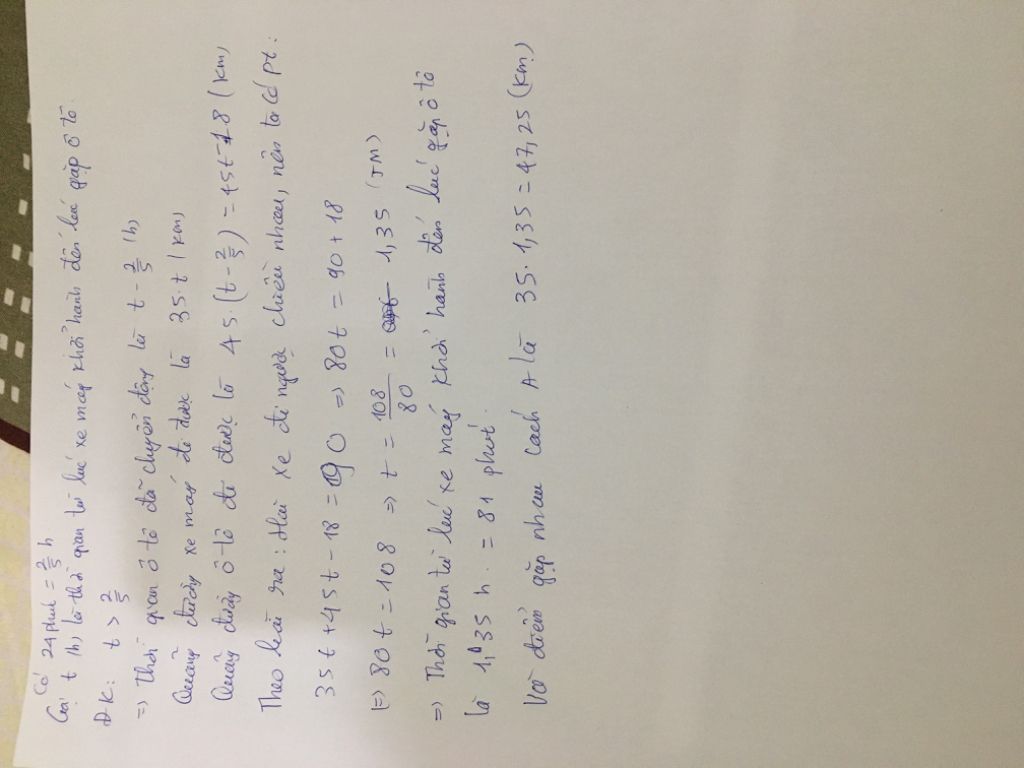 Có 24 phút = 2/5 h
Gọi t (h) là thời gian từ lúc xe máy khởi hành đến lúc gặp ô tô
ĐK: t > 2/5
=> Thời gian ô tô đã chuyển động là t - 2/5 (h)
Quãng đường xe máy đi được là 35.t (km)
Quãng đường ô tô đi được là 45.(t - 2/5) = 45t - 18 (km)
Theo bài ra: Hai xe đi ngược chiều nhau, nên ta có pt:
35t + 45t - 18 = 90 => 80t = 90 + 18
(=) 80t = 108 => t = 108/80 = 1,35 (TM)
=> Thời gian từ lúc xe máy khởi hành đến lúc gặp ô tô
là 1,35 h. = 81 phút.
Và điểm gặp nhau cách A là 35.1,35 = 47,25 (km)